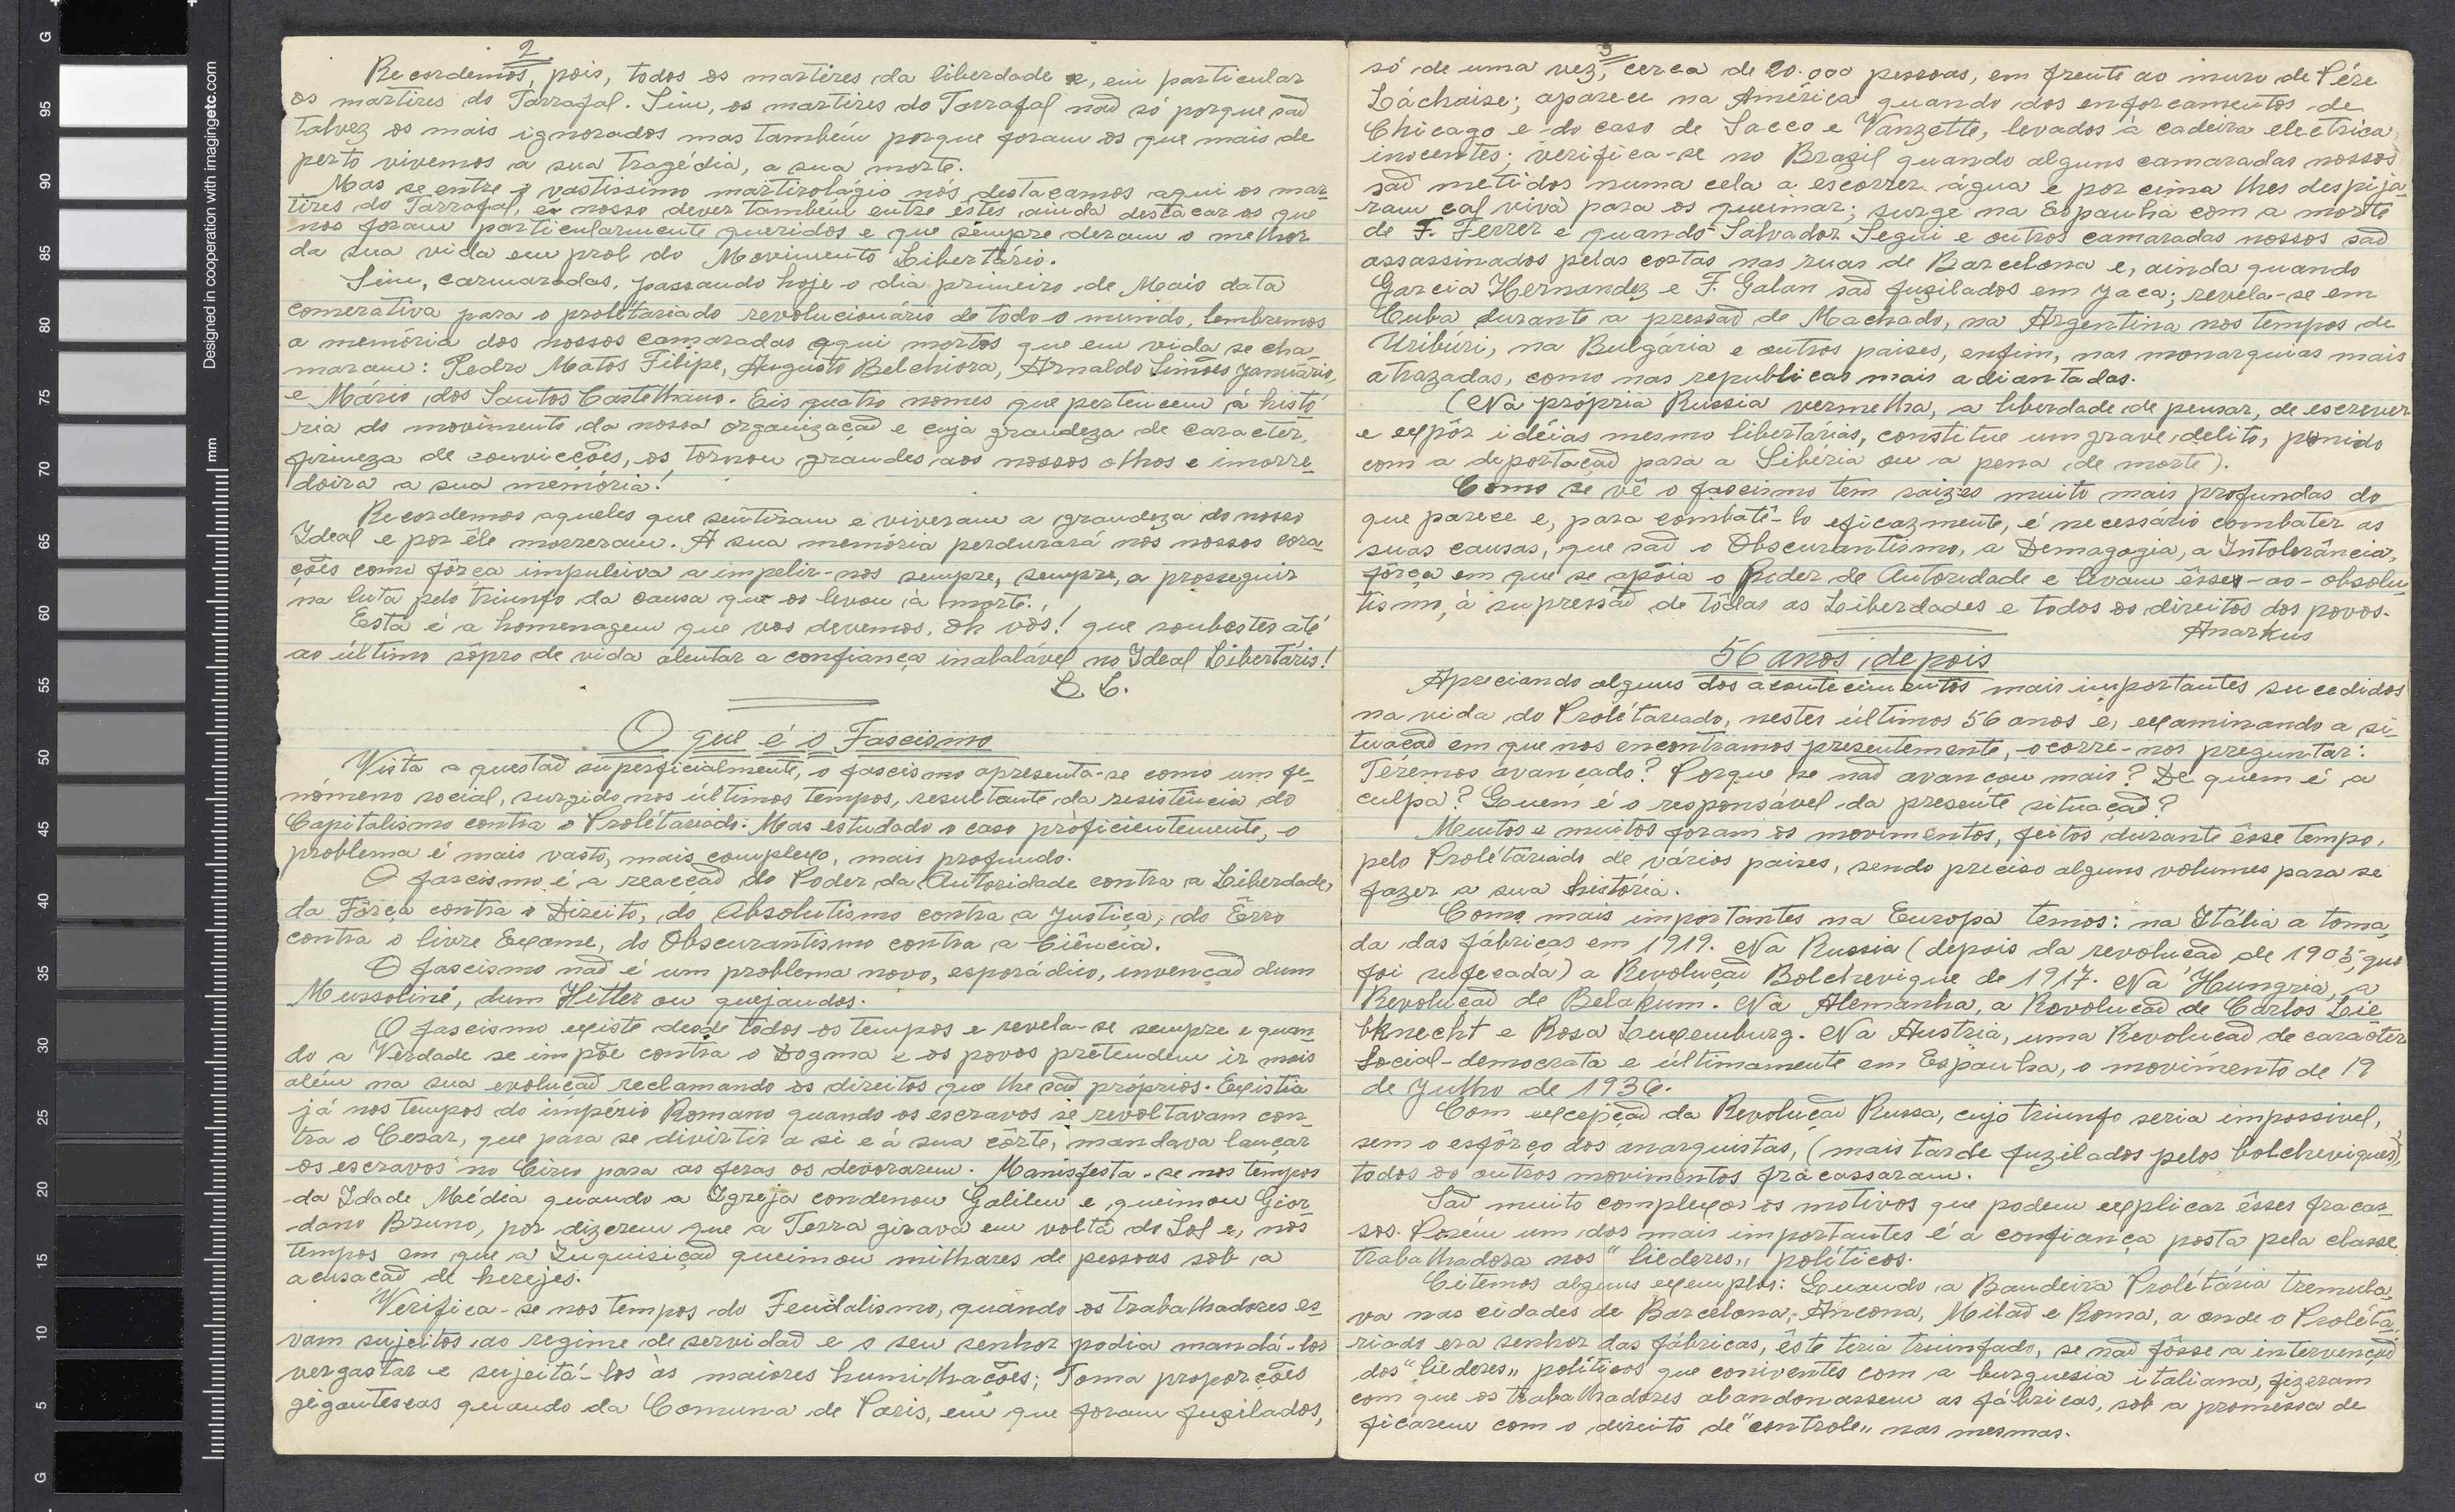 2
Recordemos, pois, todos os martires da liberdade e, em particular
os martires do Tarrafal. Sim, os martires do Tarrafal não só porque são
talvez os mais ignorados mas também porque foram os que mais de
perto vivemos a sua tragédia, a sua morte.
Mas se entre o vastissimo martirológio nós destacamos aqui os mar-
tires do Tarrafal, é nosso dever também entre êstes ainda destacar os que
nos foram particularmente queridos e que sempre deram o melhor
da sua vida em prol do Movimento Libertário.
Sim, carmaradas, passando hoje o dia primeiro de Maio data
comerativa para o prolétariado revolucionário de todo o mundo, lembremos
a memória dos nossos camaradas aqui mortos que em vida se cha-
maram: Pedro Matos Filipe, Augusto Belchiora, Arnaldo Simões Januário,
e Mário dos Santos Castelhano. Eis quatro nomes que pertencem á histó-
ria do movimento da nossa organização e cuja grandeza de caracter,
firmeza de convicções, os tornou grandes aos nossos olhos e imorre-
doira a sua memória!
Recordemos aqueles que sentiram e viveram a grandeza do nosso
Ideal e por êle morreram. A sua memória perdurará nos nossos cora-
ções como fôrça impulsiva a impelir-nos sempre, sempre, a prosseguir
na luta pelo triunfo da causa que os levou à morte.
Esta é a homenagem que vos devemos, oh vós! que soubestes até
ao último sôpro de vida alentar a confiança inabalável no Ideal Libertário!
L. L.
O que é o Fascismo
Vista a questão superficialmente, o fascismo apresenta-se como um fe-
nómeno social, surgido nos últimos tempos, resultante da resistência do
Capitalismo contra o Prolétariado. Mas estudado o caso pròficientemente, o
problema é mais vasto, mais complexo, mais profundo.
O fascismo é a reacção do Poder da Autoridade contra a Liberdade,
da Fôrça contra o Direito, do Absolutismo contra a Justiça, do Êrro
contra o livre Exame, do Obscurantismo contra a Ciência.
O fascismo não é um problema novo, esporádico, invenção dum
Mussoliné, dum Hitler ou quejandos.
O fascismo existe desde todos os tempos e revela-se sempre e quan-
do a Verdade se impõe contra o Dogma e os povos prétendem ir mais
além na sua evolução reclamando os direitos que lhe são próprios. Existia
já nos tempos do império Romano quando os escravos se revoltavam con-
tra o Cesar, que para se divirtir a si e á sua côrte, mandava lançar
os escravos no Circo para as feras os devorarem. Manisfesta-se nos tempos
da Idade Média quando a Igreja condenou Galileu e queimou Gior-
dano Bruno, por dizerem que a Terra girava em volta do Sol e, nos
tempos em que a Inquisição queimou milhares de pessoas sob a
acusação de herejes.
Verifica-se nos tempos do Feudalismo, quando os trabalhadores es-
vam sujeitos ao regime de servidão e o seu senhor podia mandá-los
vergastar e sujeitá-los às maiores humilhações; Toma proporções
gigantescas quando da Comuna de Paris, em que foram fuzilados,
3
só de uma vez, cerca de 20.000 pessoas, em frente ao muro de Pére
Láchaise; aparece na América quando dos enforcamentos de
Chicago e do caso de Sacco e Vanzette, levados à cadeira electrica,
inocentes; verifica-se no Brazil quando alguns camaradas nossos
são metidos numa cela a escorrer água e por cima lhes despija-
ram cal viva para os queimar; surge na Espanha com a morte
de F. Ferrer e quando Salvador Segui e outros camaradas nossos são
assassinados pelas costas nas ruas de Barcelona e, ainda quando
Garcia Hernandez e F. Galan são fuzilados em Jaca; revéla-se em
Cuba durante a pressão de Machado, na Argentina nos tempos de
Uribúri, na Bulgaria e outros paises, enfim, nas monarquias mais
atrazadas, como nas republicas mais adiantadas.
(Na própria Russia vermelha, a liberdade de pensar, de escrever
e expôr idéias mesmo libertárias, constitue um grave delito, punido
com a deportação para a Sibéria ou a pena de morte).
Como se vê o fascismo tem raizes muito mais profundas do
que parece e, para combatê-lo eficazmente, é necessário combater as
suas causas, que são o Obscurantismo, a Demagogia, a Intolerância,
fôrça em que se apóia o Poder de Autoridade e levam êsses-ao-absolu-
tismo, à supressão de tôdas as Liberdades e todos os direitos dos povos.
Anarkus
56 anos depois
Apreciando alguns dos acontecimentos mais importantes sucedidos
na vida do Prolétareado, nestes últimos 56 anos e, examinando a si-
tuação em que nos encontramos presentemente, ocorre-nos preguntar:
Téremos avançado? Porque se não avançou mais? De quem é a
culpa? Quem é o responsável da presente situação?
Muitos e muitos foram os movimentos, feitos durante êsse tempo,
pelo Prolétariado de vários paises, sendo preciso alguns volumes para se
fazer a sua história.
Como mais importantes na Europa temos: na Itália a toma-
da das fábricas em 1919. Na Russia (depois da revolução de 1905, que
foi sufocada) a Revolução Bolchevique de 1917. Na Hungria, a
Revolução de Belakum. Na Alemanha, a Revolução de Carlos Lie
bknecht e Rosa Luxemburg. Na Austria, uma Revolução de carácter
Social-democrata e últimamente em Espanha, o movimento de 19
de Julho de 1936.
Com excepção da Revolução Russa, cujo triunfo seria impossivel,
sem o esfôrço dos anarquistas, (mais tarde fuzilados pelos bolcheviques),
todos os outros movimentos fracassaram.
São muito complexos os motivos que podem explicar êsses fracas-
sos. Porém um dos mais importantes é a confiança posta pela classe
trabalhadora nos "liederes" políticos.
Citemos alguns exemplos: Quando a Bandeira Prolétária tremula-
va nas cidades de Barcelona, Ancona, Milão e Roma, a onde o Proléta-
riado era senhor das fábricas, êste teria triunfado, se não fôsse a intervenção
dos "liederes" políticos que coniventes com a burguesia italiana, fizeram
com que os trabalhadores abandonassem as fábricas, sob a promessa de
ficarem com o direito de "controle" nas mesmas.
G
95
90
85
80
75
70
65
60
55
50
45
40
35
30
25
20
15
10
5
G
mm
Designed in cooperation with imagingetc.com